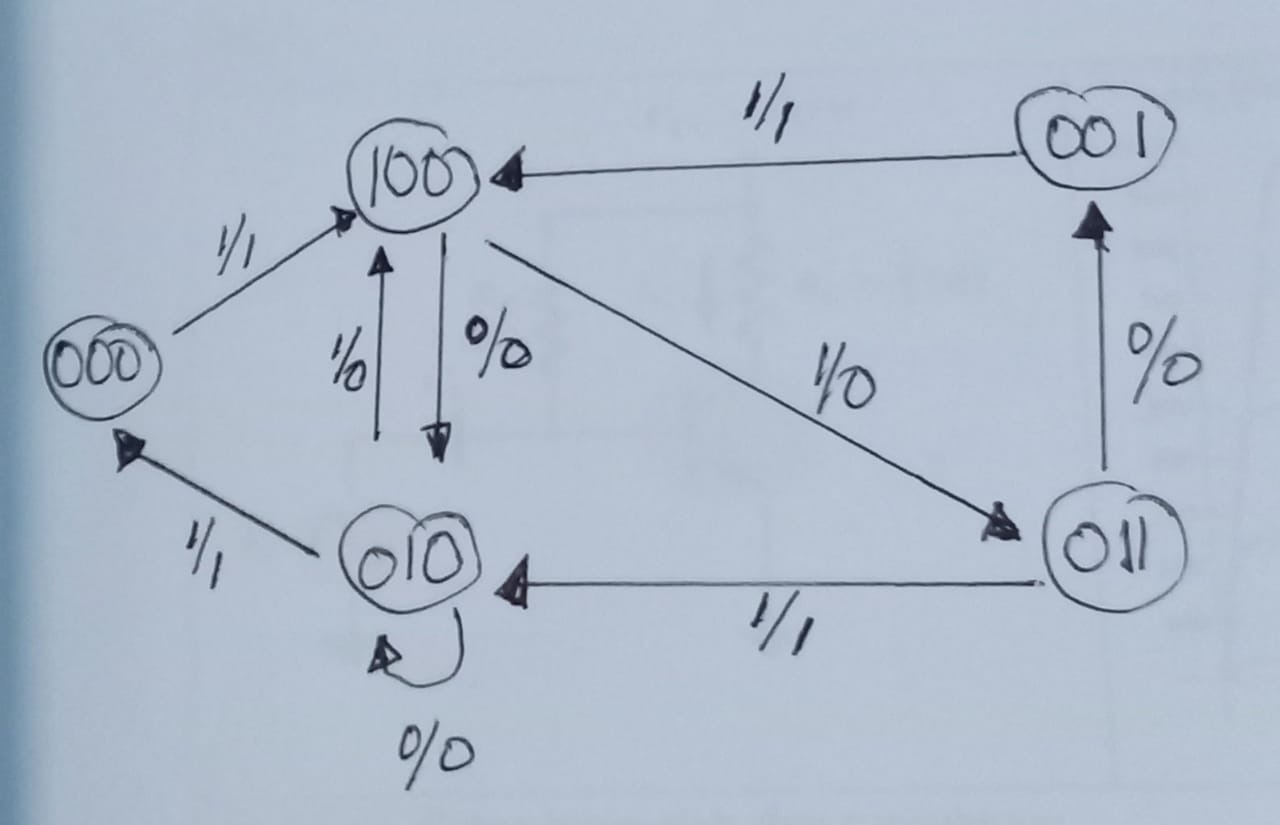 1/1
001
100
1/1
000
1/0
0/0
1/0
0/0
1/1
010
011
1/1
0/0